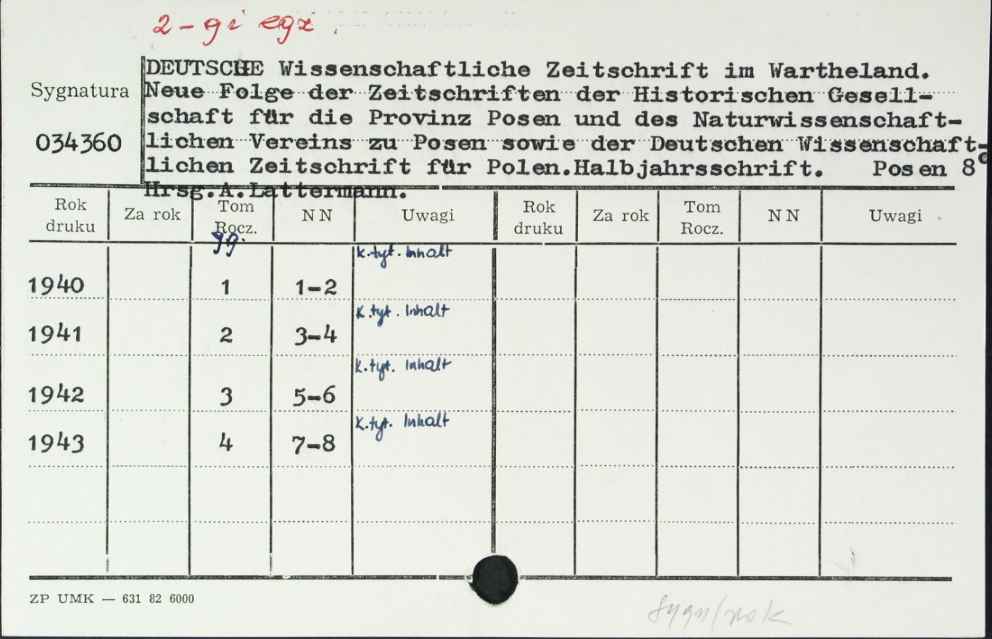 2-gi egz.
DEUTSCHE Wissenschaftliche Zeitschrift im Wartheland.
Sygnatura Neue Folge der Zeitschriften der Historischen Gesell-
schaft für die Provinz Posen und des Naturwissenschaft-
034360 lichen Vereins zu Posen sowie der Deutschen Wissenschaft-
lichen Zeitschrift für Polen.Halbjahrsschrift. Posen 8°
Hrsg.A.Lattermann.
Rok druku Za rok Tom Rocz. NN Uwagi Rok druku Za rok Tom Rocz. NN Uwagi
Jg. K.tyt. Inhalt
1940 1 1-2
K.tyt. Inhalt
1941 2 3-4
K.tyt. Inhalt
1942 3 5-6
K.tyt. Inhalt
1943 4 7-8
ZP UMK — 631 82 6000